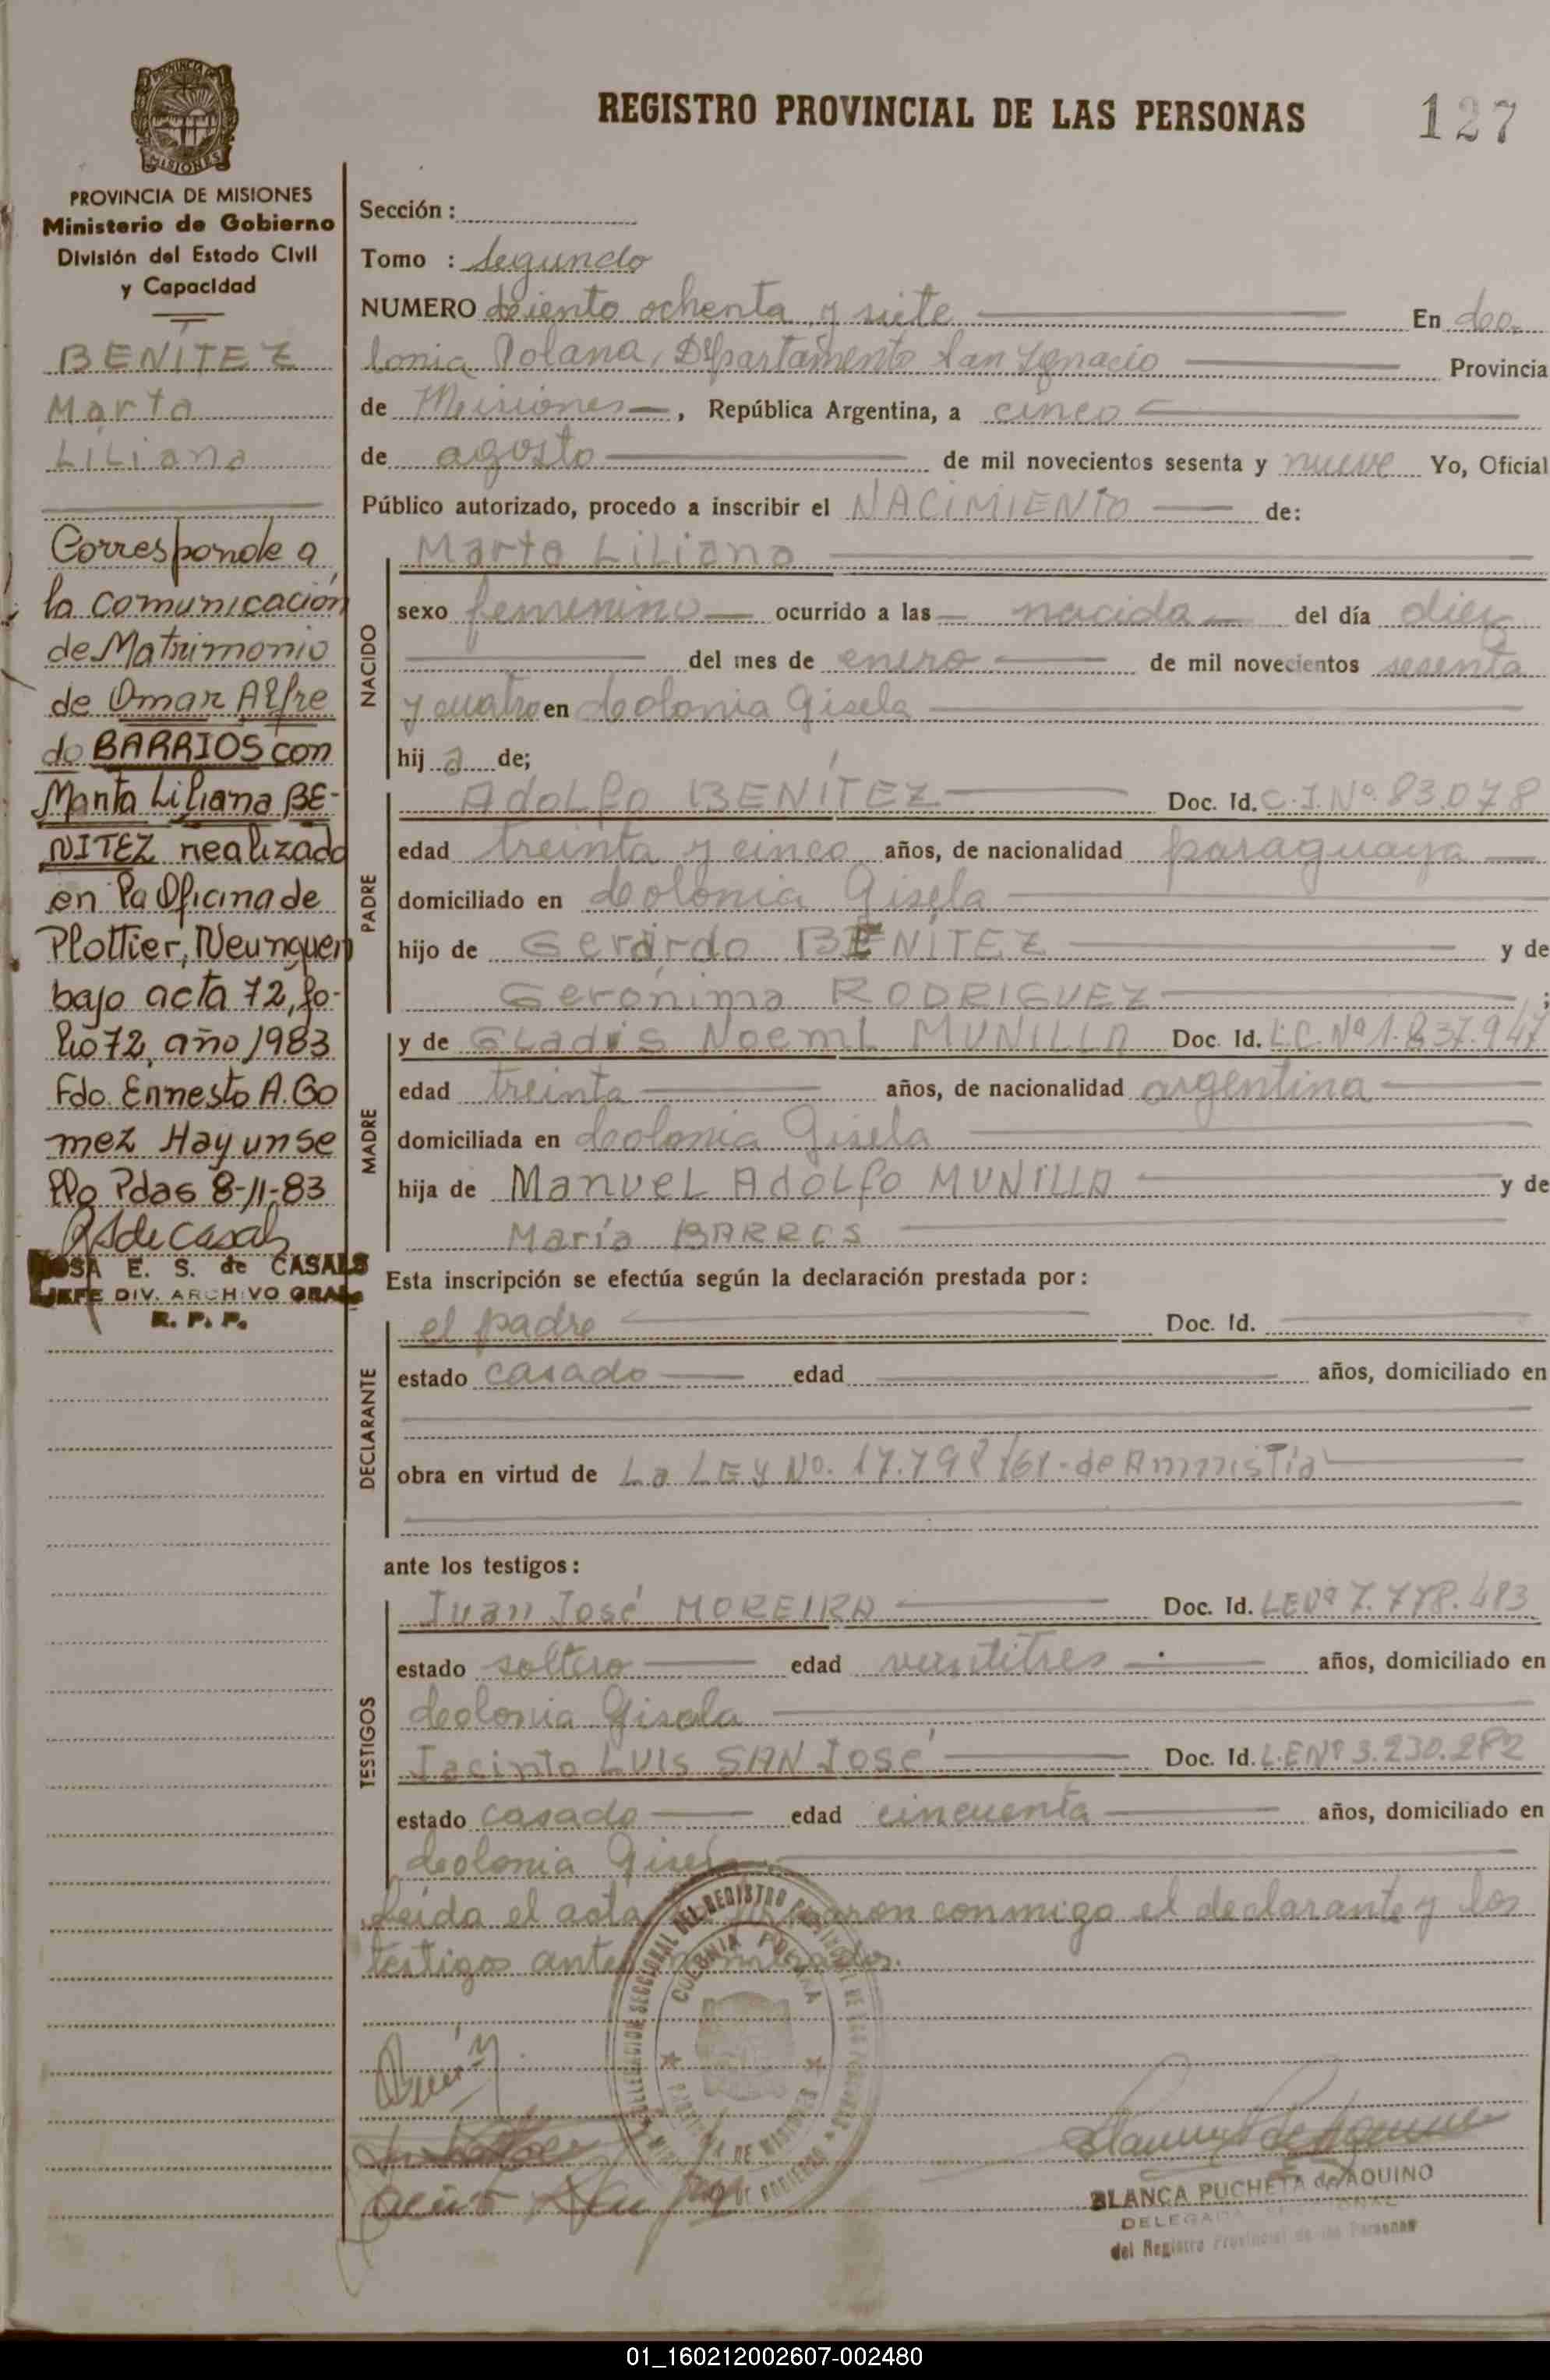 REGISTRO PROVINCIAL DE LAS PERSONAS
127
PROVINCIA DE MISIONES
MISIONES
PROVINCIA DE MISIONES
Ministerio de Gobierno
División del Estado Civil
y Capacidad
BENITEZ
Marta
Liliana
Corresponde a
la comunicación
de Matrimonio
de Omar Alfre
do BARRIOS con
Marta Liliana BE-
NITEZ realizado
en la Oficina de
Plottier, Neunquen
bajo acta 72, fo-
lio 72, año 1983
Fdo. Ernesto A. Go
mez Hay un se
llo Pdas 8-11-83
RSdeCasals
ROSA E. S. de CASALS
JEFE DIV. ARCHIVO GRAL.
R. P. P.
Sección :
Tomo : Segundo
NUMERO Ciento ochenta y siete En Co-
lonia Polana, Departamento San Ignacio Provincia
de Misiones, República Argentina, a cinco
de agosto de mil novecientos sesenta y nueve Yo, Oficial
Público autorizado, procedo a inscribir el NACIMIENTO de:
NACIDO
Marta Liliana
sexo femenino ocurrido a las nacida del día diez
del mes de enero de mil novecientos sesenta
y cuatro en Colonia Gisela
hij a de;
PADRE
Adolfo BENÍTEZ Doc. Id. C.I.Nº 83.078
edad treinta y cinco años, de nacionalidad paraguaya
domiciliado en Colonia Gisela
hijo de Gerardo BENITEZ y de
Gerónima RODRIGUEZ ;
MADRE
y de Gladis Noemi MUNILLA Doc. Id. L.C.Nº 1.837.947
edad treinta años, de nacionalidad argentina
domiciliada en Colonia Gisela
hija de Manuel Adolfo MUNILLA y de
María BARROS
Esta inscripción se efectúa según la declaración prestada por :
DECLARANTE
el padre Doc. Id.
estado casado edad años, domiciliado en
obra en virtud de La LEY No. 17.798/68 de Amnistía
ante los testigos :
TESTIGOS
Juan José MOREIRA Doc. Id. LENº 7.778.483
estado soltero edad veintitres años, domiciliado en
Colonia Gisela
Jacinto LUIS SAN José Doc. Id. L.ENº 3.230.282
estado casado edad cincuenta años, domiciliado en
Colonia Gisela
Leida el acta la firmaron conmigo el declarante y los
testigos antes nombrados.
COLONIA POLANA
PROVINCIA DE MISIONES
BLANCA PUCHETA de AQUINO
DELEGADA SECCIONAL
del Registro Provincial de las Personas
01_160212002607-002480